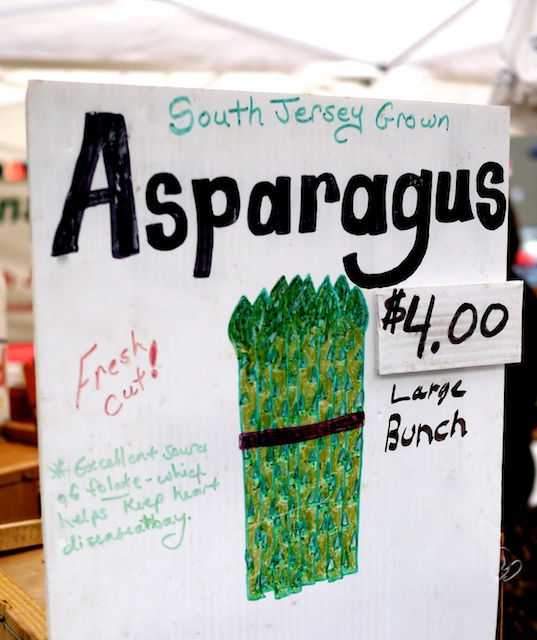 South Jersey Grown
Asparagus
$4.00
Large
Bunch
Fresh
cut!
* Excellent source
of folate - which
helps keep heart
disease at bay.